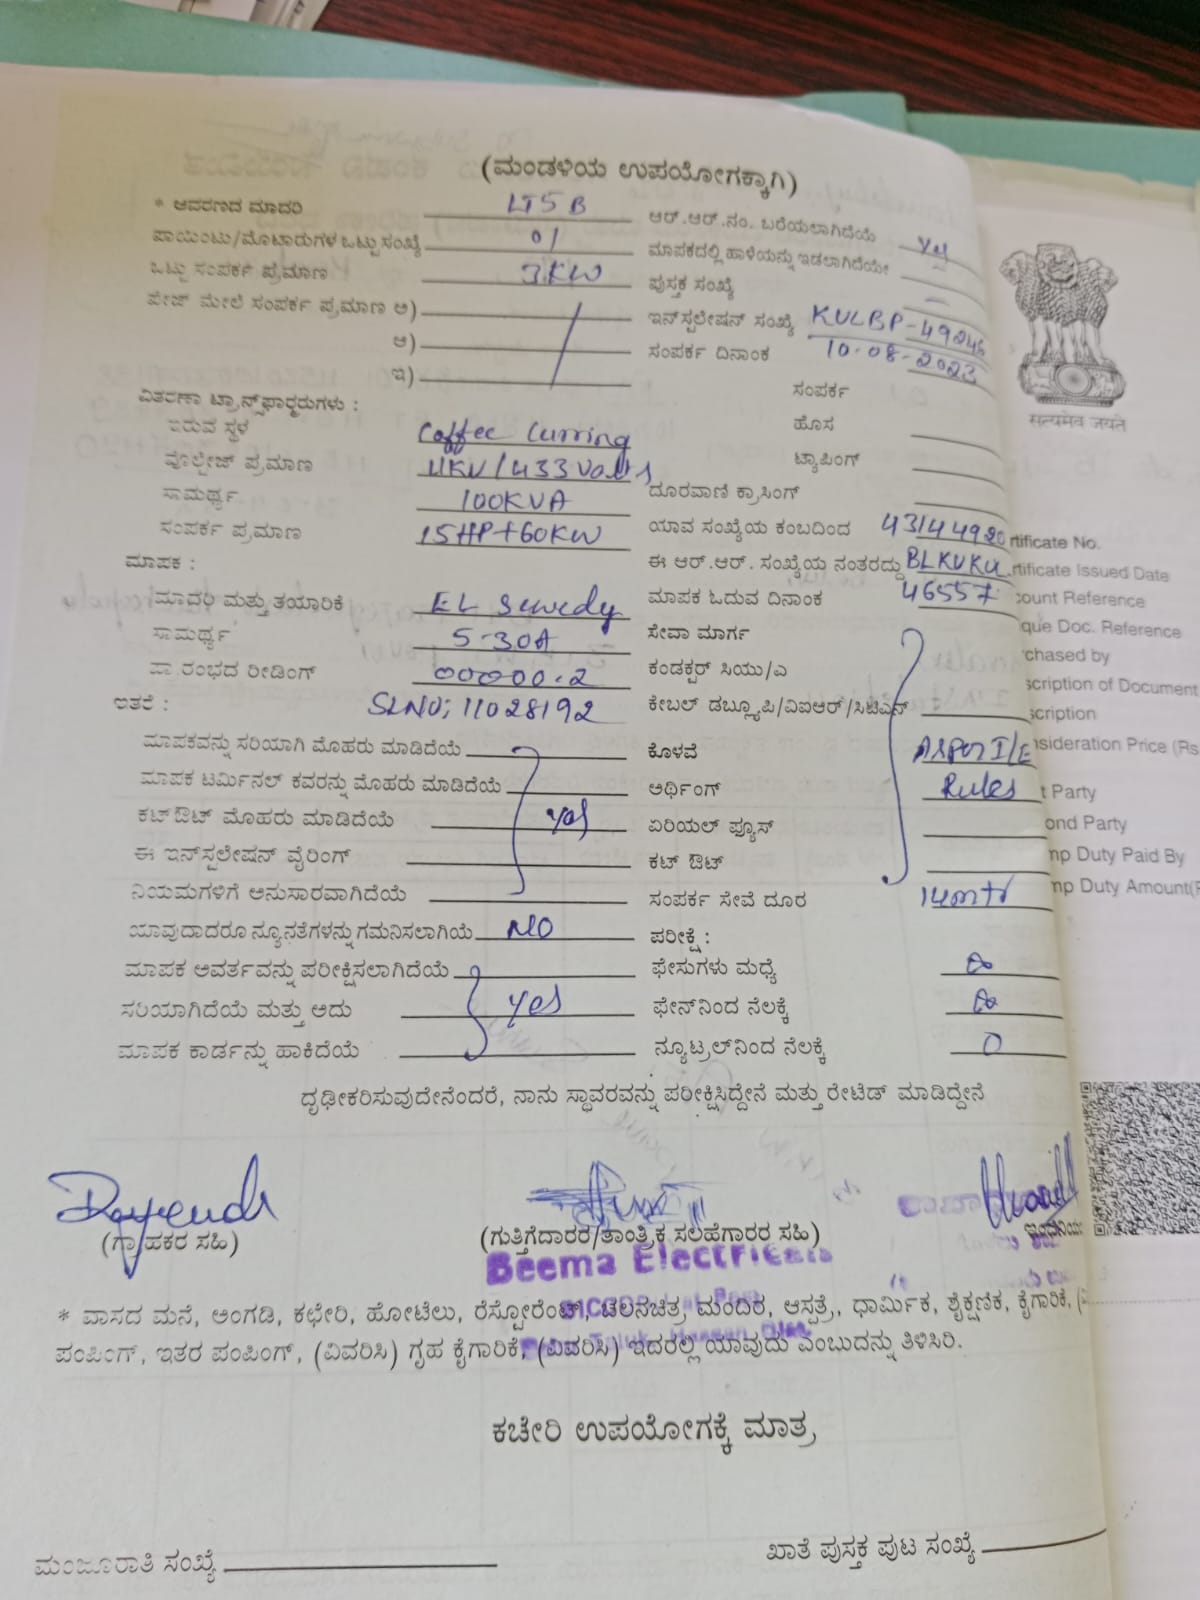 (ಮಂಡಳಿಯ ಉಪಯೋಗಕ್ಕಾಗಿ)
* ಆವರಣದ ಮಾದರಿ LT5B
ಪಾಯಿಂಟು/ಮೊಟಾರುಗಳ ಒಟ್ಟು ಸಂಖ್ಯೆ 01
ಒಟ್ಟು ಸಂಪರ್ಕ ಪ್ರಮಾಣ 3KW
ಪೇಜ್ ಮೇಲೆ ಸಂಪರ್ಕ ಪ್ರಮಾಣ ಅ)
ಆ)
ಇ)
ವಿತರಣಾ ಟ್ರಾನ್ಸ್‌ಫಾರ್‍ಮರುಗಳು :
ಇರುವ ಸ್ಥಳ Coffee Curring
ವೊಲ್ಟೇಜ್ ಪ್ರಮಾಣ 11KV/433 Volts
ಸಾಮರ್ಥ್ಯ 100KVA
ಸಂಪರ್ಕ ಪ್ರಮಾಣ 15HP+60KW
ಮಾಪಕ :
ಮಾದರಿ ಮತ್ತು ತಯಾರಿಕೆ EL Sewedy
ಸಾಮರ್ಥ್ಯ 5-30A
ಪ್ರಾರಂಭದ ರೀಡಿಂಗ್ 00000.2
ಇತರೆ : SLNO; 11028192
ಮಾಪಕವನ್ನು ಸರಿಯಾಗಿ ಮೊಹರು ಮಾಡಿದೆಯೆ
ಮಾಪಕ ಟರ್ಮಿನಲ್ ಕವರನ್ನು ಮೊಹರು ಮಾಡಿದೆಯೆ
ಕಟ್‌ಔಟ್ ಮೊಹರು ಮಾಡಿದೆಯೆ yes
ಈ ಇನ್‌ಸ್ಟಲೇಷನ್ ವೈರಿಂಗ್
ನಿಯಮಗಳಿಗೆ ಅನುಸಾರವಾಗಿದೆಯೆ
ಯಾವುದಾದರೂ ನ್ಯೂನತೆಗಳನ್ನು ಗಮನಿಸಲಾಗಿಯೆ NO
ಮಾಪಕ ಅವರ್ತವನ್ನು ಪರೀಕ್ಷಿಸಲಾಗಿದೆಯೆ
ಸರಿಯಾಗಿದೆಯೆ ಮತ್ತು ಅದು yes
ಮಾಪಕ ಕಾರ್ಡನ್ನು ಹಾಕಿದೆಯೆ
ಆರ್.ಆರ್.ನಂ. ಬರೆಯಲಾಗಿದೆಯೆ yes
ಮಾಪಕದಲ್ಲಿ ಹಾಳೆಯನ್ನು ಇಡಲಾಗಿದೆಯೇ
ಪುಸ್ತಕ ಸಂಖ್ಯೆ —
ಇನ್‌ಸ್ಟಲೇಷನ್ ಸಂಖ್ಯೆ KULBP-49246
ಸಂಪರ್ಕ ದಿನಾಂಕ 10-08-2023
ಸಂಪರ್ಕ
ಹೊಸ
ಟ್ಯಾಪಿಂಗ್
ದೂರವಾಣಿ ಕ್ರಾಸಿಂಗ್
ಯಾವ ಸಂಖ್ಯೆಯ ಕಂಬದಿಂದ 43144920
ಈ ಆರ್.ಆರ್. ಸಂಖ್ಯೆಯ ನಂತರದ್ದು BLKUKU
ಮಾಪಕ ಓದುವ ದಿನಾಂಕ 46557
ಸೇವಾ ಮಾರ್ಗ
ಕಂಡಕ್ಟರ್ ಸಿಯು/ಎ
ಕೇಬಲ್ ಡಬ್ಲ್ಯೂಪಿ/ವಿಐಆರ್/ಸಿಟಿಎಸ್
ಕೊಳವೆ As per I/E
ಅರ್ಥಿಂಗ್ Rules
ಏರಿಯಲ್ ಫ್ಯೂಸ್
ಕಟ್ ಔಟ್
ಸಂಪರ್ಕ ಸೇವೆ ದೂರ 14mtr
ಪರೀಕ್ಷೆ :
ಫೇಸುಗಳು ಮಧ್ಯೆ ∞
ಫೇಸ್‌ನಿಂದ ನೆಲಕ್ಕೆ ∞
ನ್ಯೂಟ್ರಲ್‌ನಿಂದ ನೆಲಕ್ಕೆ 0
ದೃಢೀಕರಿಸುವುದೇನೆಂದರೆ, ನಾನು ಸ್ಥಾವರವನ್ನು ಪರೀಕ್ಷಿಸಿದ್ದೇನೆ ಮತ್ತು ರೇಟೆಡ್ ಮಾಡಿದ್ದೇನೆ
(ಗ್ರಾಹಕರ ಸಹಿ)
(ಗುತ್ತಿಗೆದಾರರ/ತಾಂತ್ರಿಕ ಸಲಹೆಗಾರರ ಸಹಿ)
Beema Electricals
* ವಾಸದ ಮನೆ, ಅಂಗಡಿ, ಕಛೇರಿ, ಹೋಟೆಲು, ರೆಸ್ಟೋರೆಂಟ್, ಚಲನಚಿತ್ರ ಮಂದಿರ, ಆಸ್ಪತ್ರೆ, ಧಾರ್ಮಿಕ, ಶೈಕ್ಷಣಿಕ, ಕೈಗಾರಿಕೆ,
ಪಂಪಿಂಗ್, ಇತರ ಪಂಪಿಂಗ್, (ವಿವರಿಸಿ) ಗೃಹ ಕೈಗಾರಿಕೆ, (ವಿವರಿಸಿ) ಇದರಲ್ಲಿ ಯಾವುದು ಎಂಬುದನ್ನು ತಿಳಿಸಿರಿ.
ಕಚೇರಿ ಉಪಯೋಗಕ್ಕೆ ಮಾತ್ರ
ಮಂಜೂರಾತಿ ಸಂಖ್ಯೆ
ಖಾತೆ ಪುಸ್ತಕ ಪುಟ ಸಂಖ್ಯೆ
सत्यमेव जयते
rtificate No.
rtificate Issued Date
count Reference
que Doc. Reference
rchased by
scription of Document
scription
nsideration Price (Rs
t Party
ond Party
mp Duty Paid By
mp Duty Amount(R